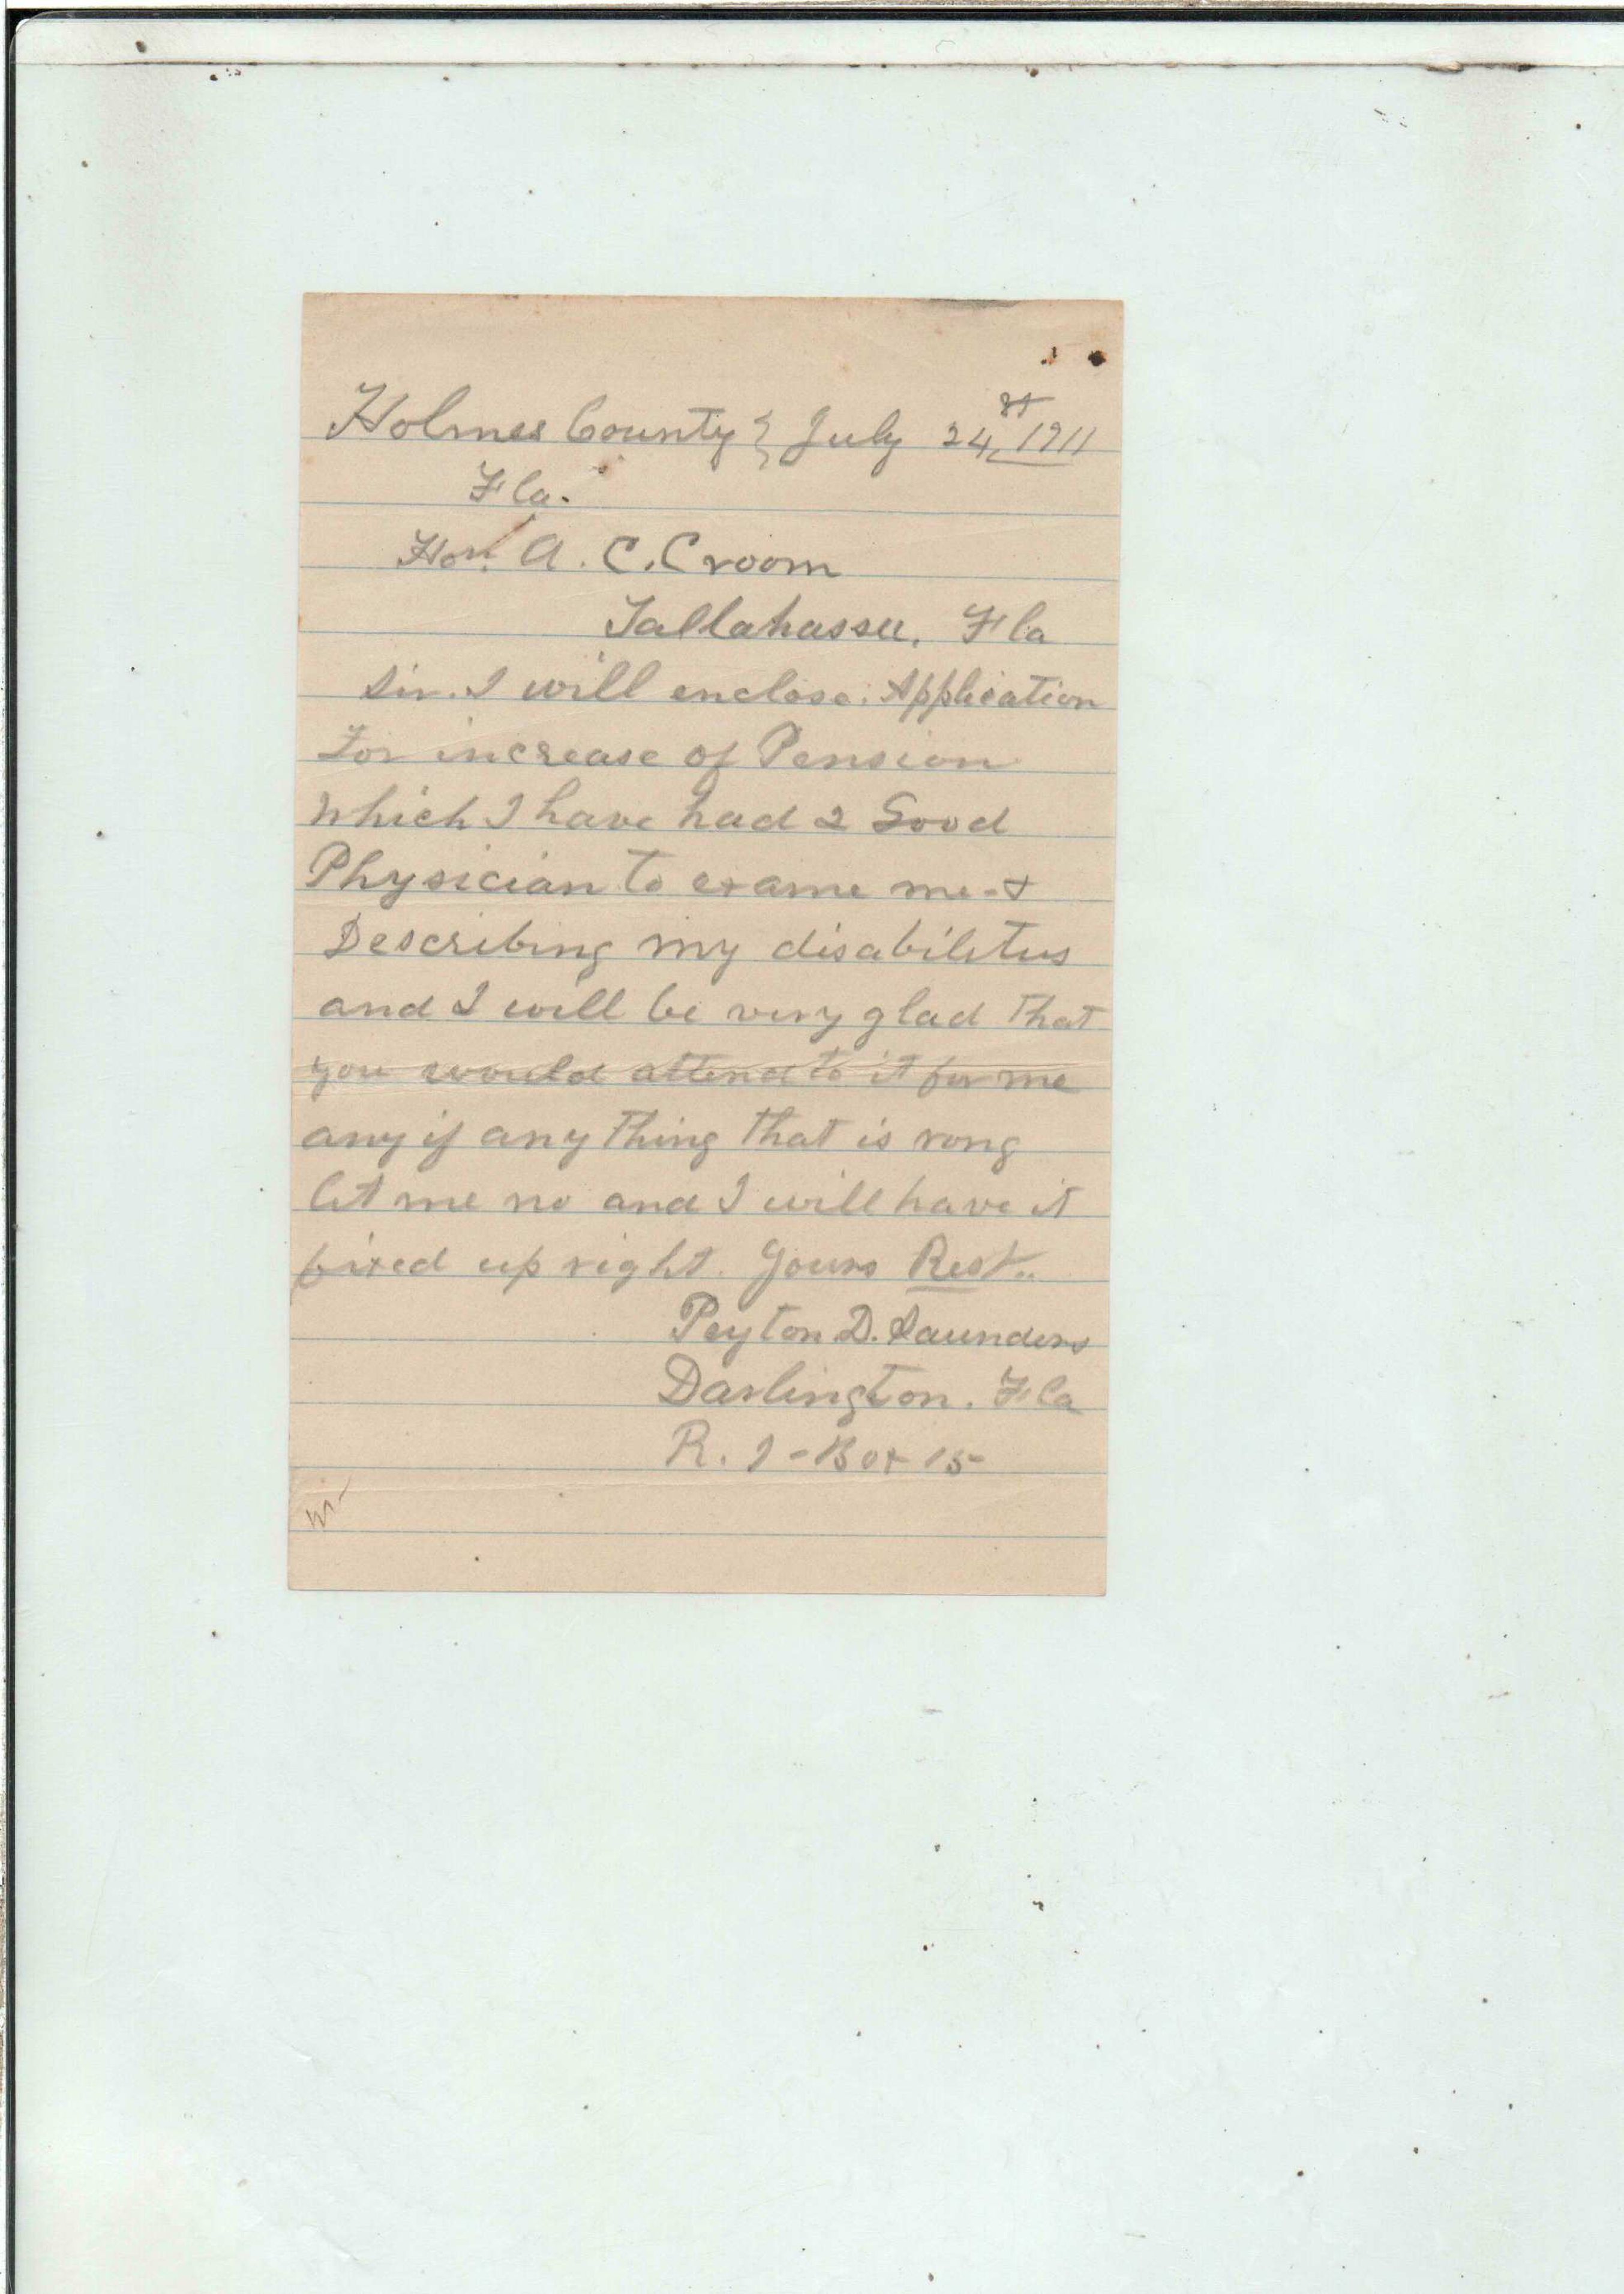 Holmes County } July 24, st 1911
Fla.
Hon. A. C. Croom
Tallahassee, Fla
Sir. I will enclose. Application
For increase of Pension
Which I have had 2 Good
Physician to exame me - &
Describing my disabilities
and I will be very glad that
you would attend to it for me
any if any thing that is rong
let me no and I will have it
fixed up right. Yours Rest..
Peyton D. Saunders
Darlington. Fla
R. 1 - Box 15